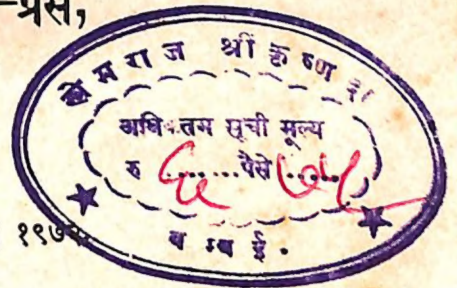 –प्रेस,
खेमराज श्रीकृष्णदा
अधिकतम सूची मूल्य
रु ६ ........पैसे ७५
१९७२
बम्बई.